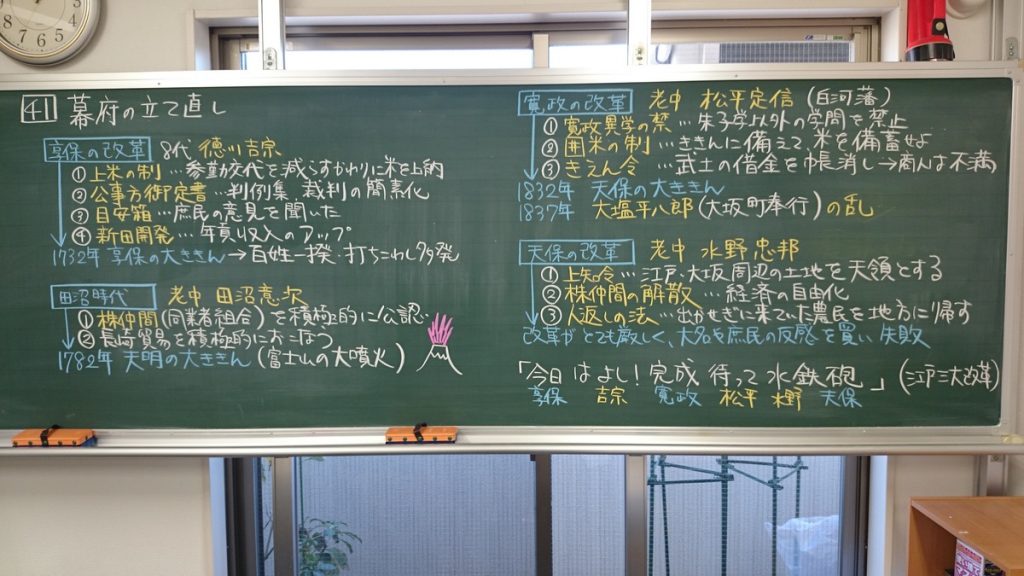 41 幕府の立て直し
享保の改革 8代 徳川吉宗
① 上米の制 … 参勤交代を減らすかわりに米を上納
② 公事方御定書 … 判例集 裁判の簡素化
③ 目安箱 … 庶民の意見を聞いた
④ 新田開発 … 年貢収入のアップ
1732年 享保の大ききん → 百姓一揆・打ちこわし多発
田沼時代 老中 田沼意次
① 株仲間(同業者組合)を積極的に公認
② 長崎貿易を積極的におこなう
1782年 天明の大ききん(富士山の大噴火)
寛政の改革 老中 松平定信(白河藩)
① 寛政異学の禁 … 朱子学以外の学問を禁止
② 囲米の制 … ききんに備えて、米を備蓄せよ
③ きえん令 … 武士の借金を帳消し → 商人は不満
1832年 天保の大ききん
1837年 大塩平八郎(大坂町奉行)の乱
天保の改革 老中 水野忠邦
① 上知令 … 江戸・大坂周辺の土地を天領とする
② 株仲間の解散 … 経済の自由化
③ 人返しの法 … 出かせぎに来ていた農民を地方に帰す
改革がとても厳しく、大名や庶民の反感を買い失敗
「今日はよい!完成待って水鉄砲」(江戸三大改革)
享保 吉宗 寛政 松平 水野 天保